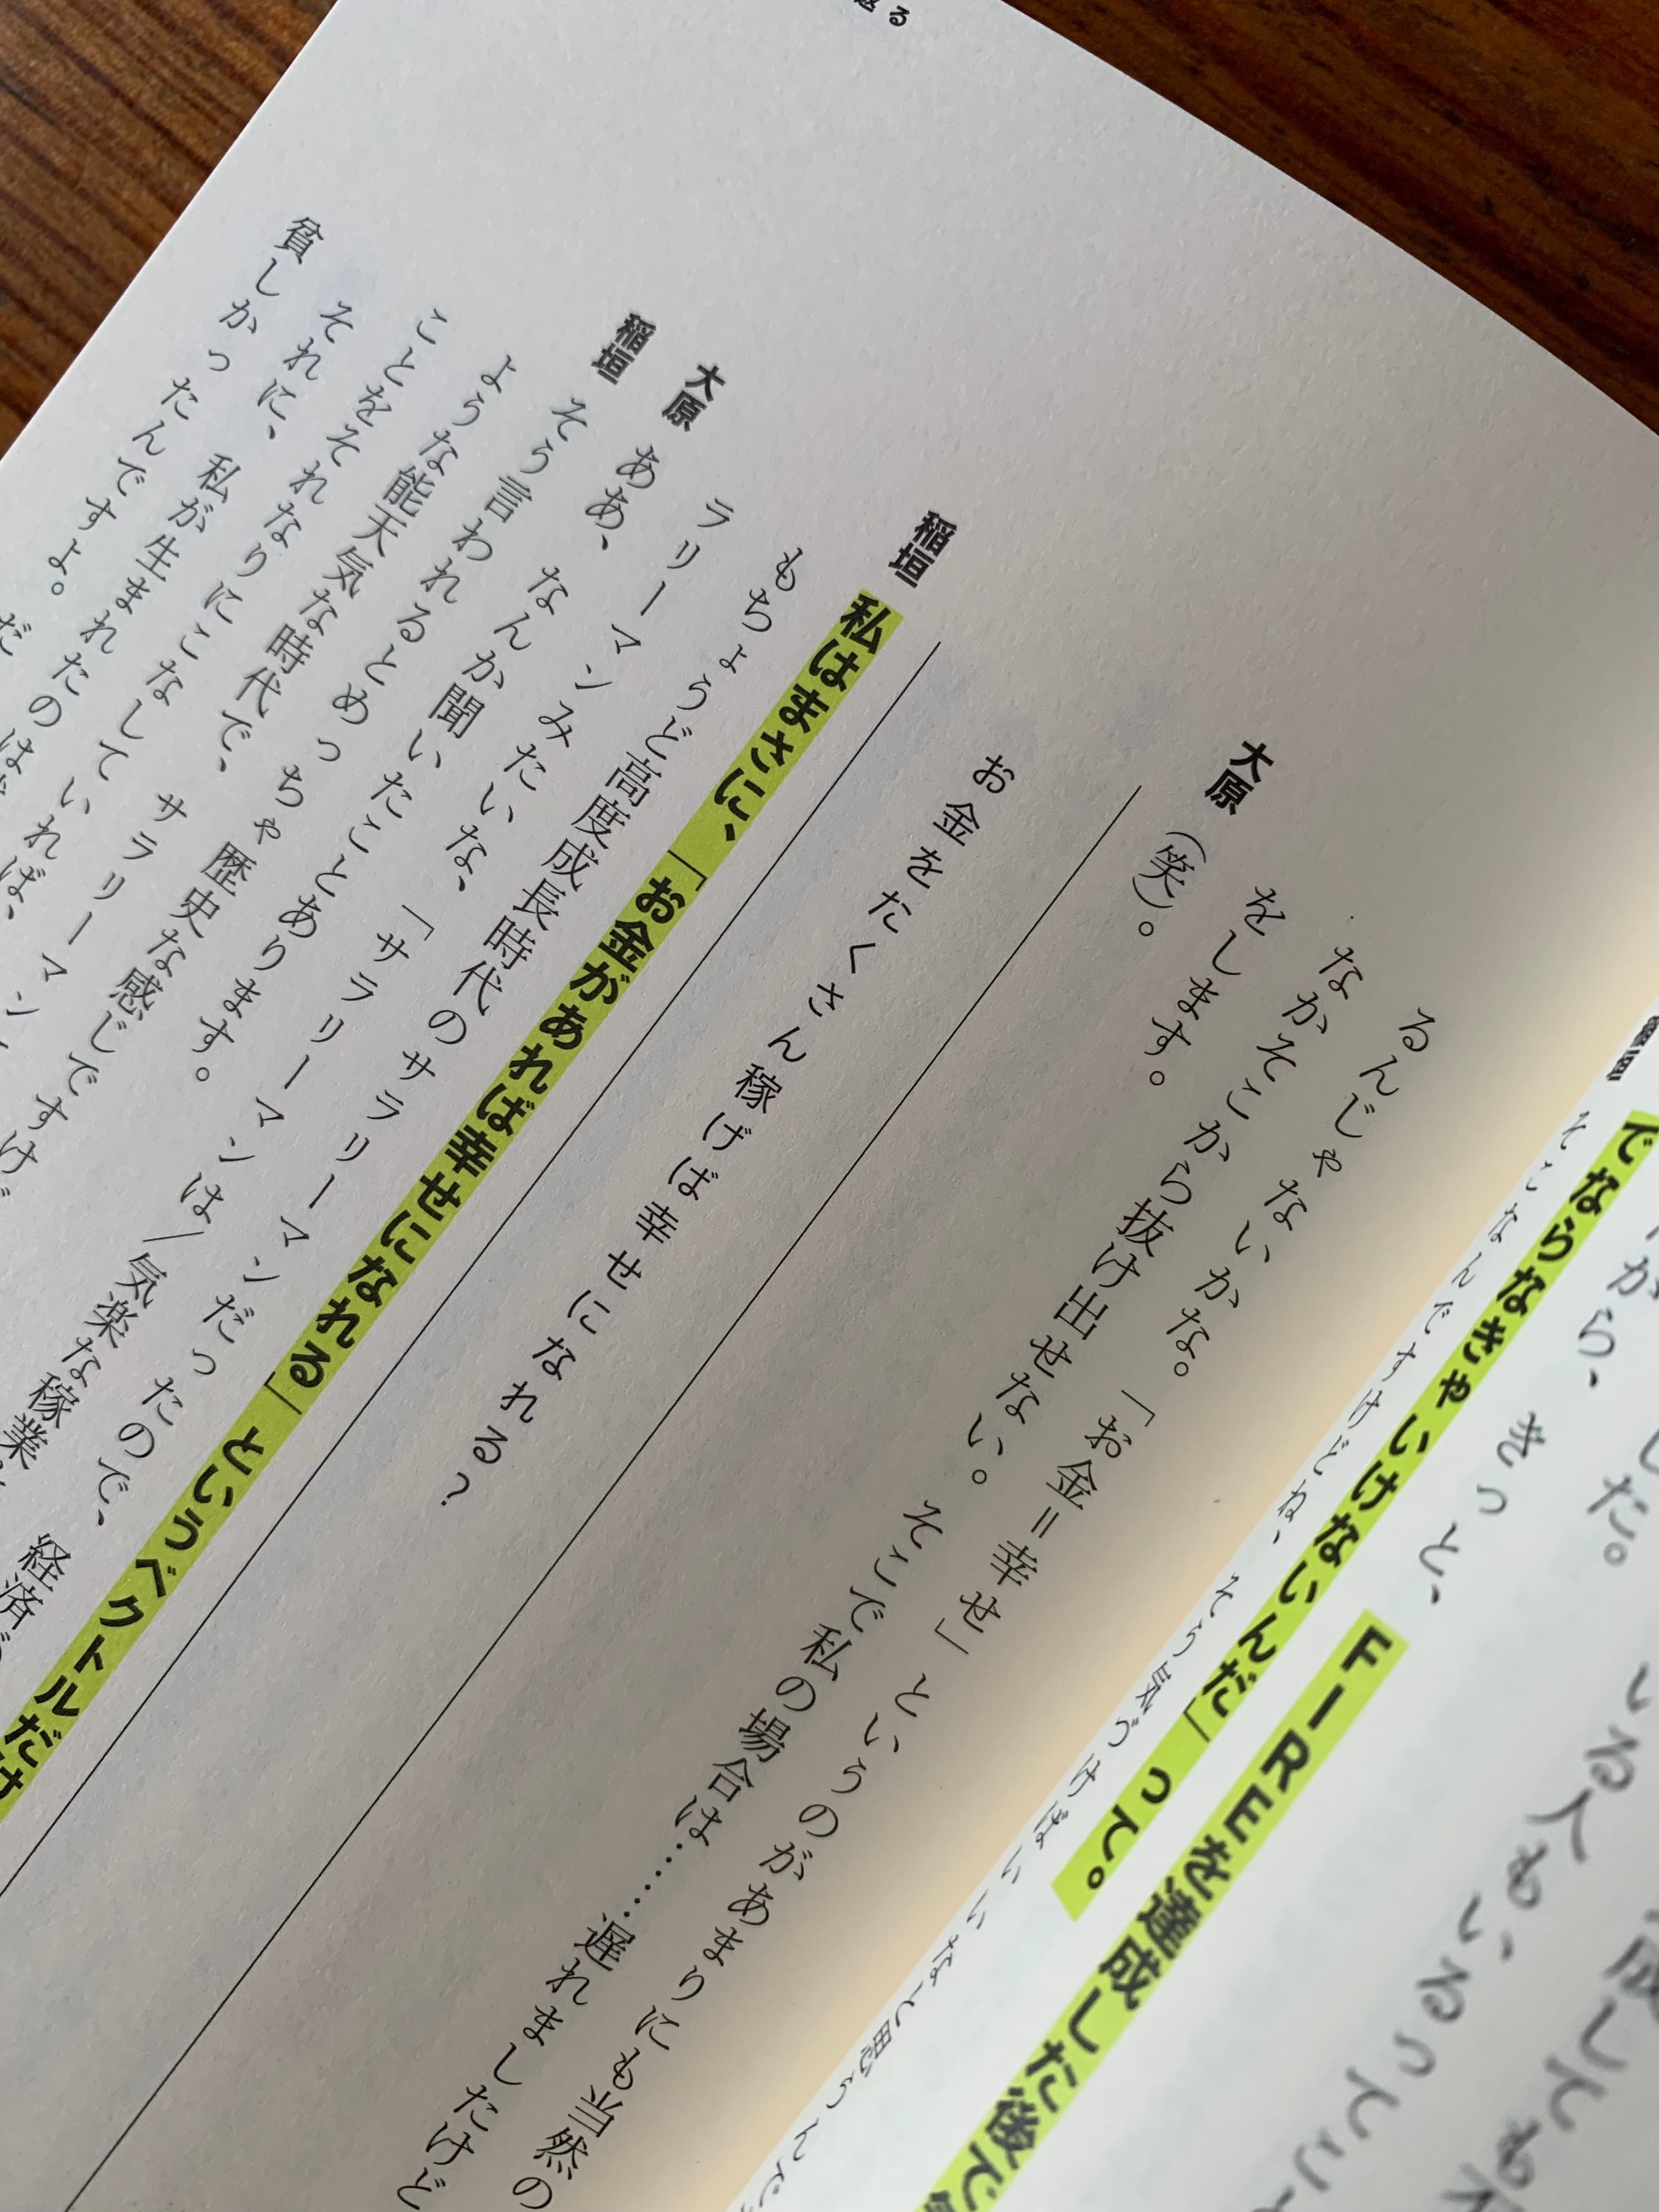 いる人もいるってこと
がら、きっと、FIREを達成した後で
でならなきゃいけないんだ」って。
そこなんですけどね、そう気づけばいいなと思うんで
るんじゃないかな。「お金＝幸せ」というのがあまりにも当然の
なかそこから抜け出せない。そこで私の場合は……遅れましたけど
をします。
大原 （笑）。
お金をたくさん稼げば幸せになれる？
稲垣 私はまさに、「お金があれば幸せになれる」というベクトルだけ
もちょうど高度成長時代のサラリーマンだったので、経済
ラリーマンみたいな、「サラリーマンは〳気楽な稼業
大原 ああ、なんか聞いたことあります。
稲垣 そう言われるとめっちゃ歴史な感じですけど
ような能天気な時代で、サラリーマン
ことをそれなりにこなしていれば、
それに、私が生まれたのは
貧しかったんですよ。だ